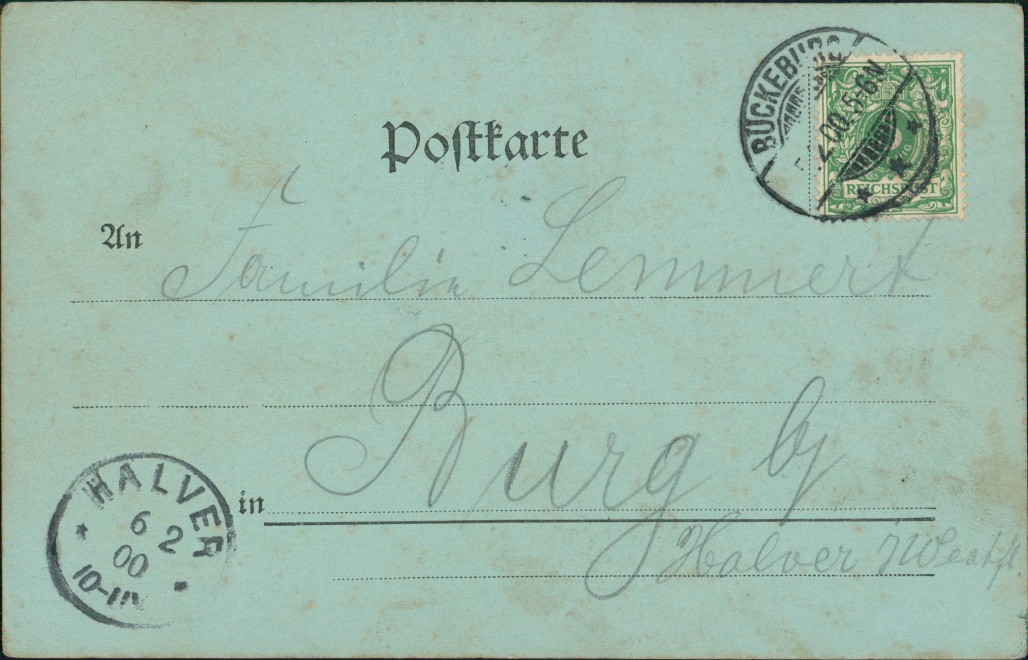 Postkarte
BÜCKEBURG
5.2.00.5-6N
REICHSPOST
An Familie Lemmert
Burg b/
in
Halver i/Westfl
HALVER
6 2
00
10-11V